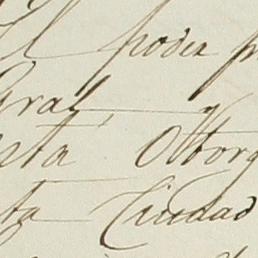 El poder
Gral
esta Otorg
ta Ciudad